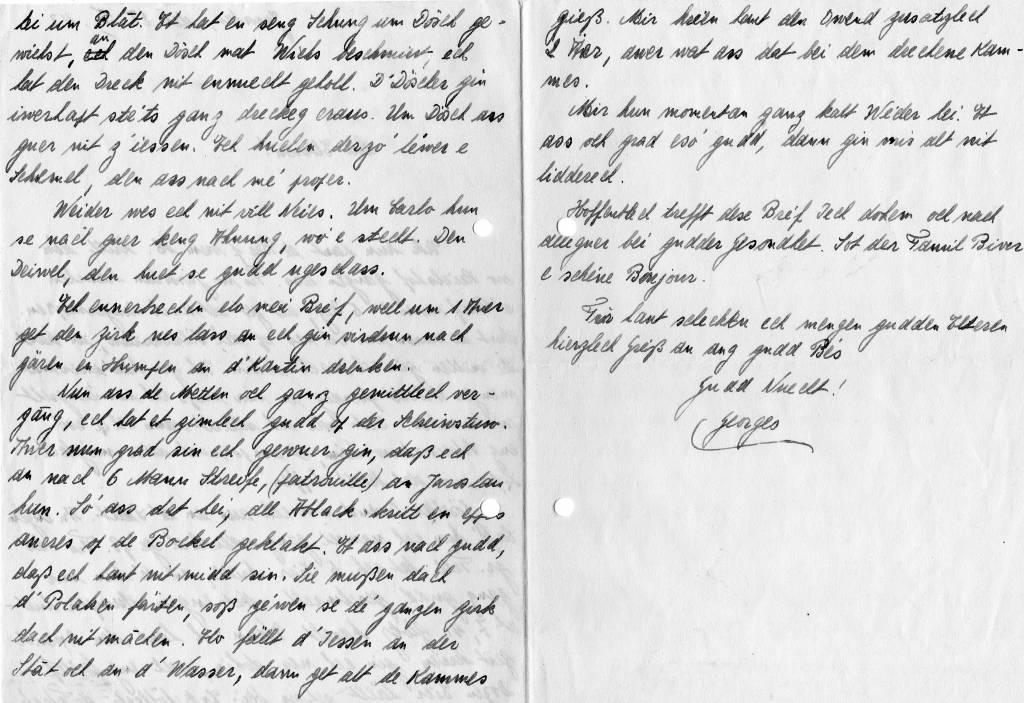 hei um Blat. Et hat en seng Schung um Dösch ge-
wichst, an den Dösch mat Wichs beschmiert, ech
hat den Dreck nit enmecht geholl. D'Döscher gin
iwerhaft stéts ganz dreckeg eraus. Um Dösch ass
guer nit z'iessen. Ech huelen derzó léwer e
Schemel, den ass nach mé proper.
Weider wes ech nit vill Neies. Um Carlo hun
se nach guer keng Ahnung, wó e stecht. Den
Deiwel, den huet se gudd ugeschass.
Ech ennerbriechen elo mei Bréf, well um 1 Auer
get den Zirk nes lass an ech gin virdrun nach
gären en Humpen an d'Kantin drenken.
Nun ass de Metten och ganz gemittlech ver-
gäng, ech hat et zimlech gudd of der Schreiwstuw.
Awer nun grad sin ech gewuer gin, daß ech
an nach 6 Mann Streife, (patrouille) an Jaroslau
hun. Só ass dat hei, all Ablack kritt en eppes
aneres of de Bockel geklakt. Et ass nach gudd,
daß ech haut nit midd sin. Sie mußen dach
d'Polaken färten, soß géwen se dé ganzen Zirk
dach nit mächen. Elo fällt d'Iessen an der
Stát och an d'Wasser, dann get alt de Kammes
gieß. Mir kréien haut den Owend zusatzlech
2 Auer, awer wat ass dat bei dem drechene Kam-
mes.
Mir hun momentan ganz kalt Wieder hei. Et
ass och grad esó gudd, dann gin mir alt nit
lidderech.
Hoffentlech trefft dese Bréf Iech dohem och nach
alleguer bei gudder Gesondhet. Sot der Famil Biver
e schéine Bonjour.
Fir haut schecken ech mengen gudden Elteren
hierzlech Gréiß an eng gudd Bés
Gudd Nuecht!
Georges